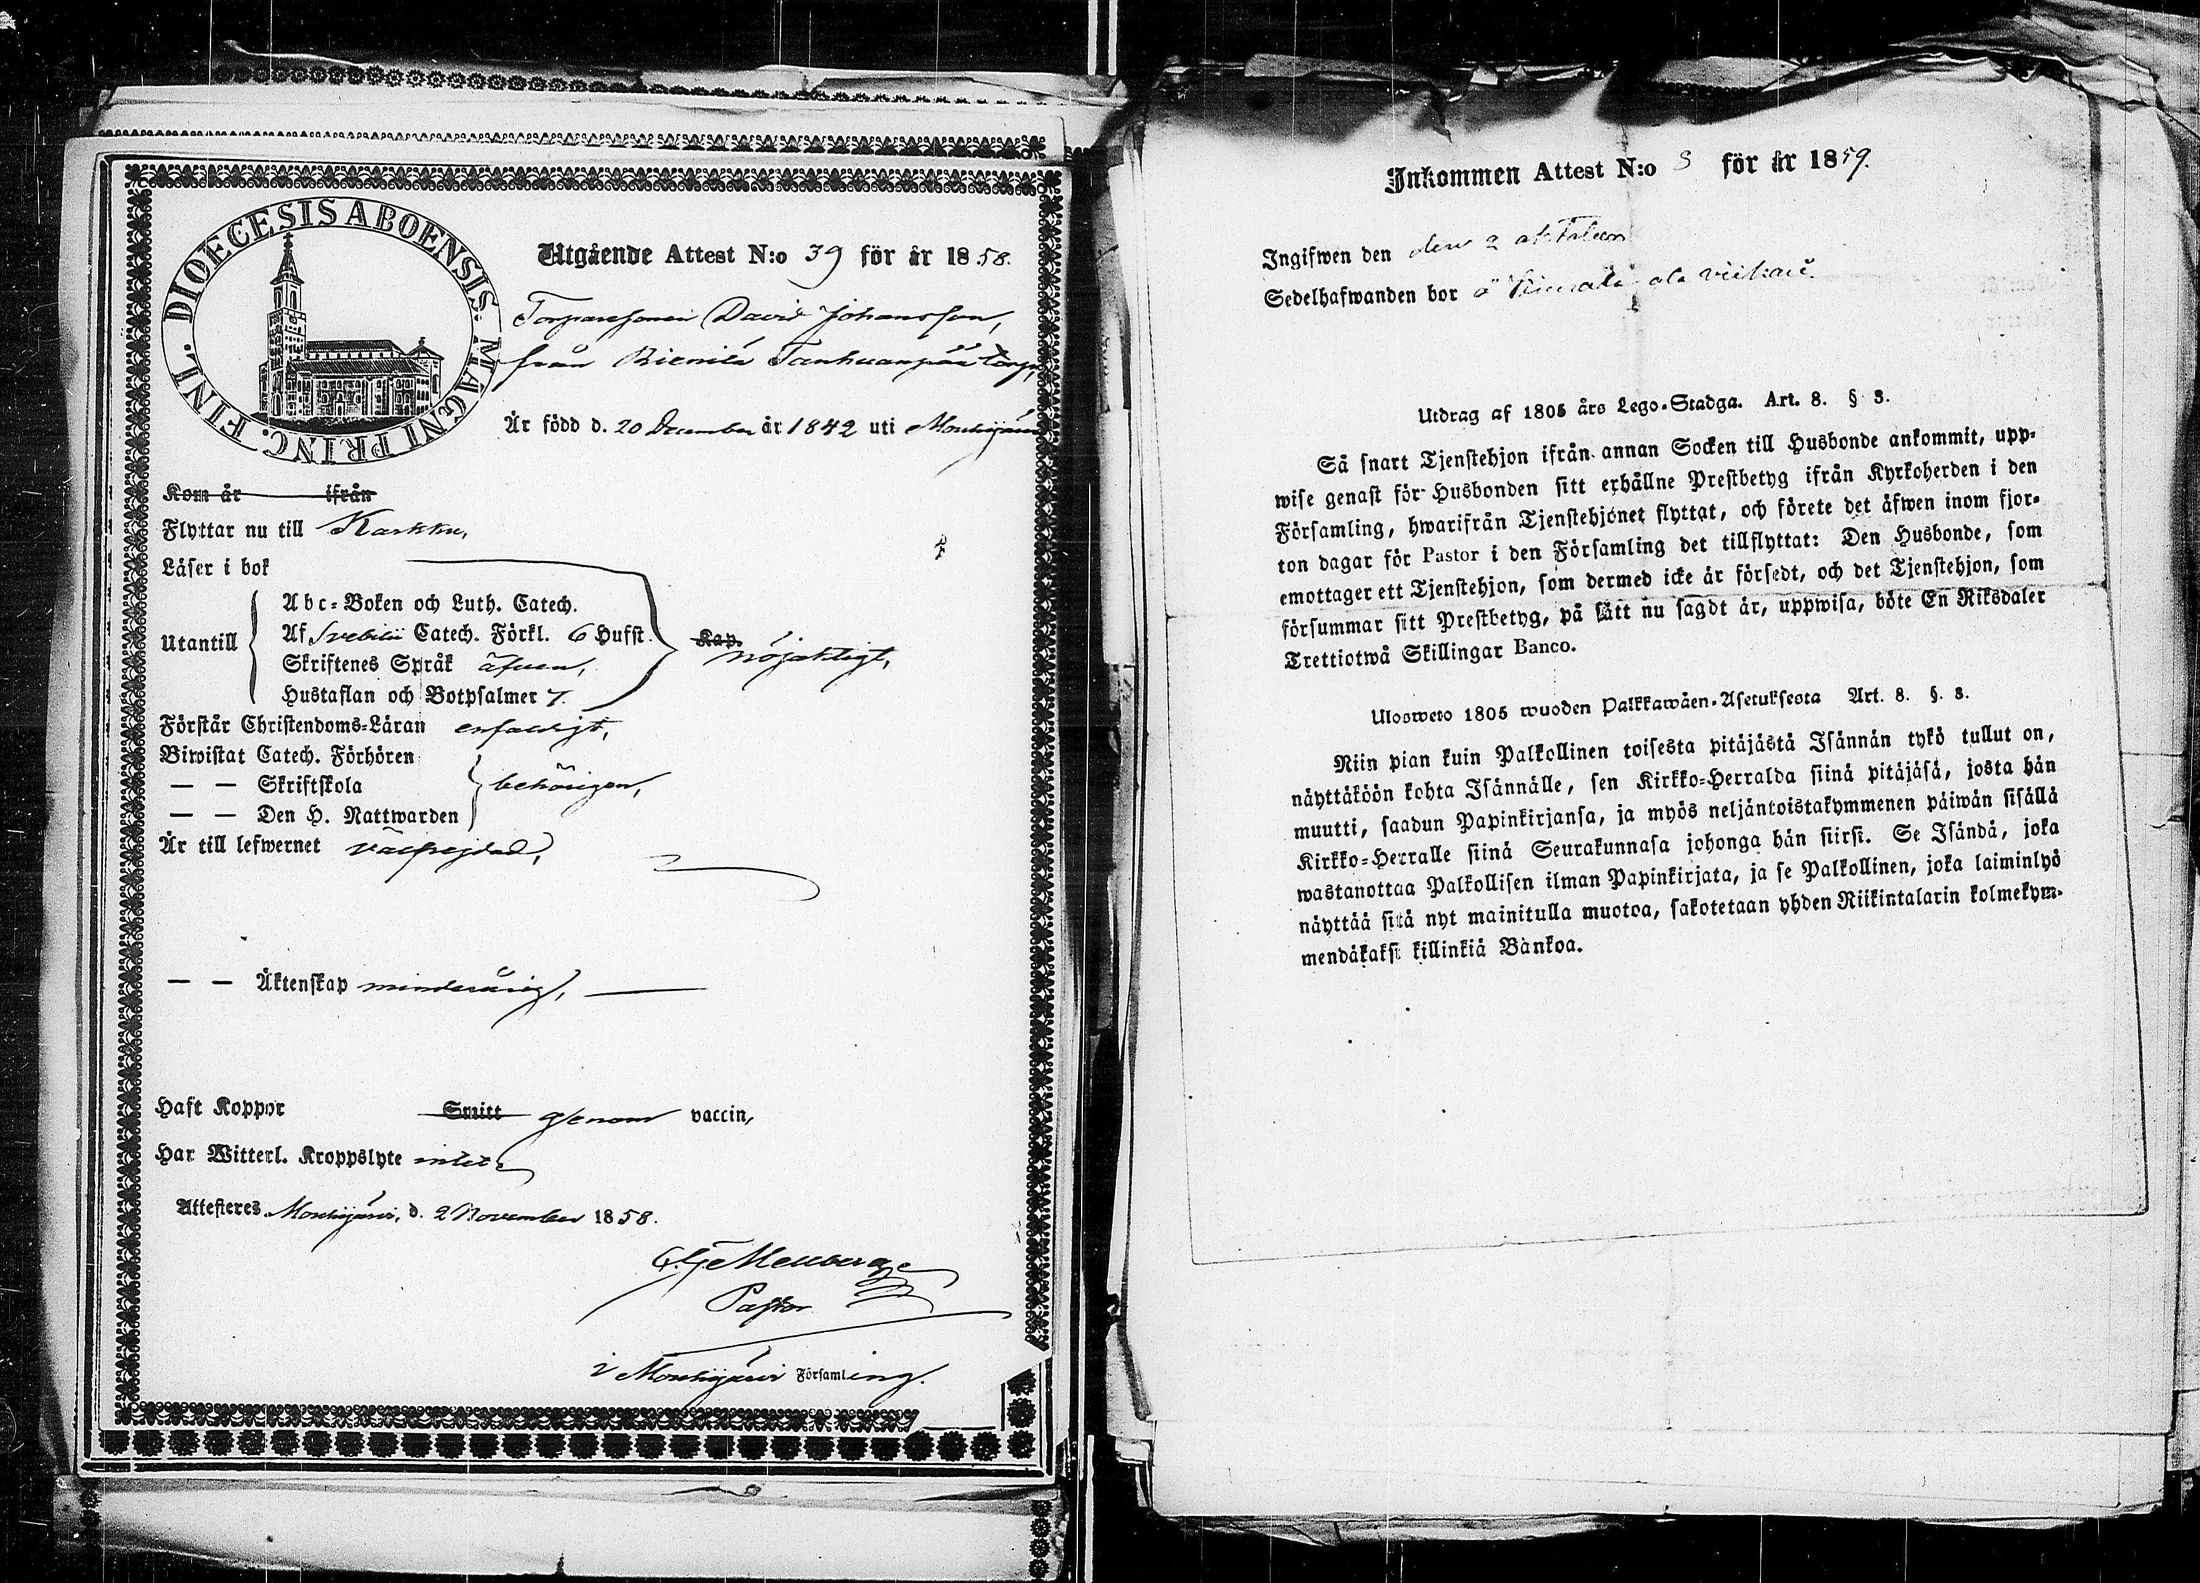 DIOECESIS ABOENSIS. MAGNI PRINC. FINL.
Utgående Attest N:o 39 för år 1858.
Torparesonen David Johansson,
från Tanhuanpää torp,
Är född d. 20 December år 1842 uti Mouhijärvi
Kom år ifrån
Flyttar nu till Karkku,
Läser i bok
Utantill
Abc-Boken och Luth. Catech.
Af Svebilii Catech. Förkl. 6 Hufst.
Skriftenes Språk äfven,
Hustaflan och Botpsalmer 7.
Kap.
nöjaktigt,
Förstår Christendoms-Läran enfaldigt,
Biwistat Catech. Förhören
— — Skriftskola
— — Den H. Nattwarden
behörigen,
Är till lefwernet välfrejdad,
— — Äktenskap minderårig,
Haft Koppor Smitt genom vaccin,
Har Witterl. Kroppslyte intet.
Attesteres Mouhijärvi, d. 2 November 1858.
Mellberg
Pastor
i Mouhijärvi Församling.
Inkommen Attest N:o 3 för år 1859.
Ingifwen den den 2
Sedelhafwanden bor
Utdrag af 1805 års Lego-Stadga. Art. 8. § 3.
Så snart Tjenstehjon ifrån annan Socken till Husbonde ankommit, upp-
wise genast för Husbonden sitt erhållne Prestbetyg ifrån Kyrkoherden i den
Församling, hwarifrån Tjenstehjonet flyttat, och förete det äfwen inom fjor-
ton dagar för Pastor i den Församling det tillflyttat: Den Husbonde, som
emottager ett Tjenstehjon, som dermed icke är försedt, och det Tjenstehjon, som
försummar sitt Prestbetyg, på sätt nu sagdt är, uppwisa, böte En Riksdaler
Trettiotwå Skillingar Banco.
Ulosweto 1805 wuoden Palkkawäen-Asetuksesta Art. 8. §. 3.
Niin pian kuin Palkollinen toisesta pitäjästä Isännän tykö tullut on,
näyttäköön kohta Isännälle, sen Kirkko-Herralda siinä pitäjäsä, josta hän
muutti, saadun Papinkirjansa, ja myös neljäntoistakymmenen päiwän sisällä
Kirkko-Herralle siinä Seurakunnasa johonga hän siirsi. Se Isändä, joka
wastanottaa Palkollisen ilman Papinkirjata, ja se Palkollinen, joka laiminlyö
näyttää sitä nyt mainitulla muotoa, sakotetaan yhden Riikintalarin kolmekym-
mendäkaksi killinkiä Bankoa.